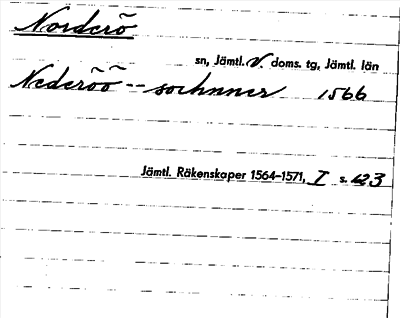 Norderö
sn, Jämtl. V. doms. tg, Jämtl. län
Nederöö -- sochnner 1566
Jämtl. Räkenskaper 1564-1571, I s. 123